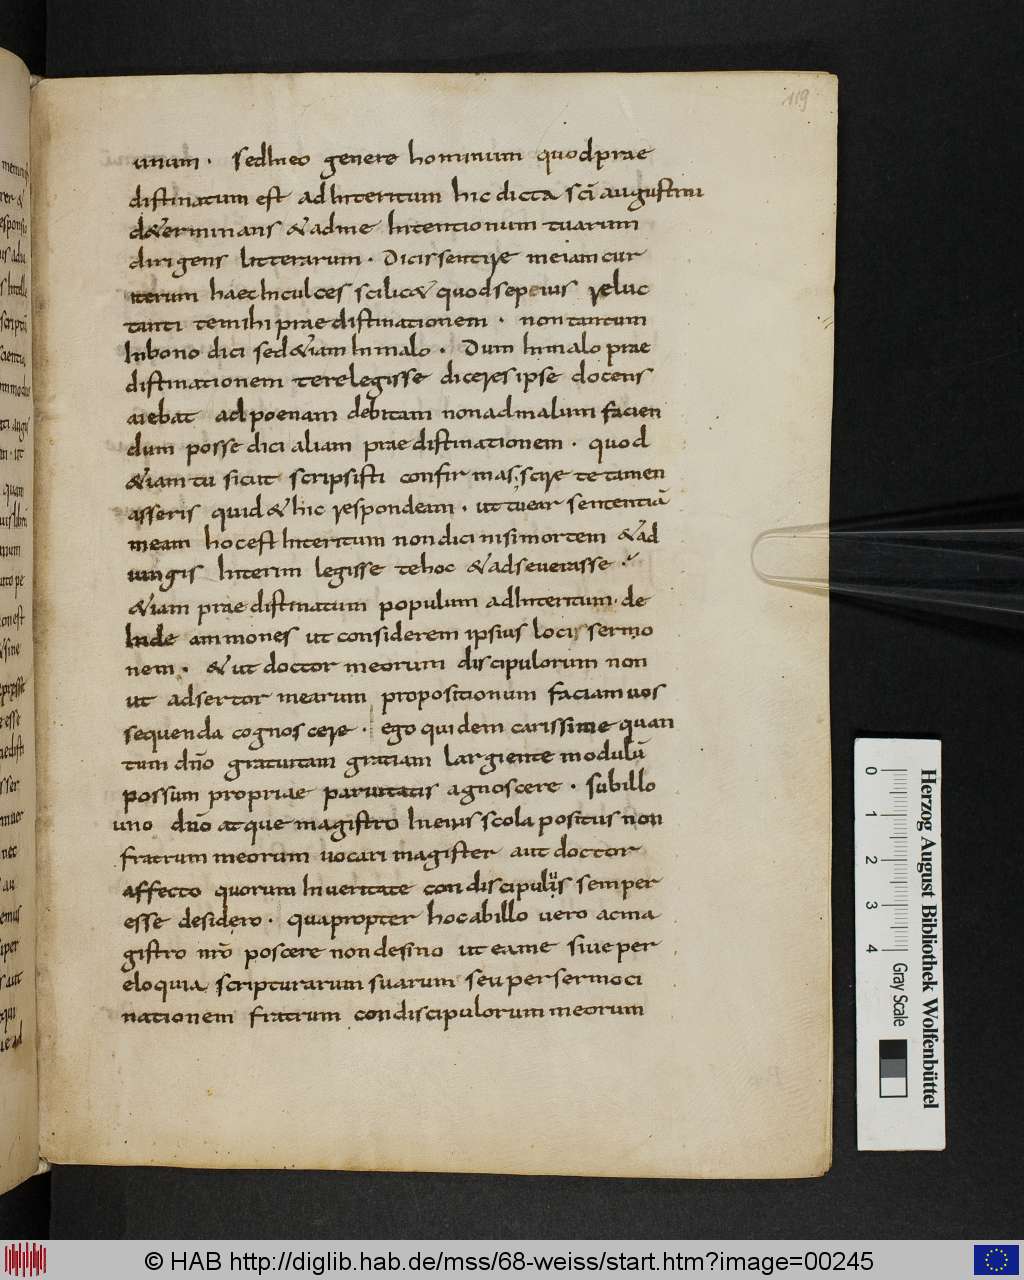 119
unum · sed In eo genere hominum quod prae
distinatum est ad Interitum hic dicta sci augustini
d&erminans & ad me Intentionum tuarum
dirigens litterarum · Dicis sentire me iam cur
iterum haec Inculces scilic& quod sepeius reluc
tanti te mihi praedistinationem · non tantum
In bono dici sed &iam In malo · Dum In malo prae
distinationem te relegisse diceres ipse docens
aiebat ad poenam debitam non ad malum facien
dum posse dici aliam praedistinationem · quod
&iam tu sicut scripsisti confirmas; scire te tamen
asseris quid & hic respondeam · ut tuear sententiā
meam hoc est Interitum non dici nisi mortem & ad
iungis Interim legisse te hoc & adseverasse ·
&iam praedistinatum populum ad Interitum · de
Inde ammones ut considerem ipsius loci sermo
nem · & ut doctor meorum discipulorum non
ut adsertor mearum propositionum faciam vos
sequenda cognoscere · ego quidem carissime quan
tum dn̄o gratuitam gratiam largiente modulū
possum propriae paruitatis agnoscere · sub illo
uno dn̄o atque magistro In eius scola positus non
fratrum meorum uocari magister aut doctor
affecto quorum In ueritate condiscipulus semper
esse desidero · quapropter hoc ab illo uero ac ma
gistro nr̄o poscere non desino ut ea me siue per
eloquia scripturarum suarum seu per sermoci
nationem fratrum condiscipulorum meorum
0 1 2 3 4
Gray Scale
Herzog August Bibliothek Wolfenbüttel
© HAB http://diglib.hab.de/mss/68-weiss/start.htm?image=00245